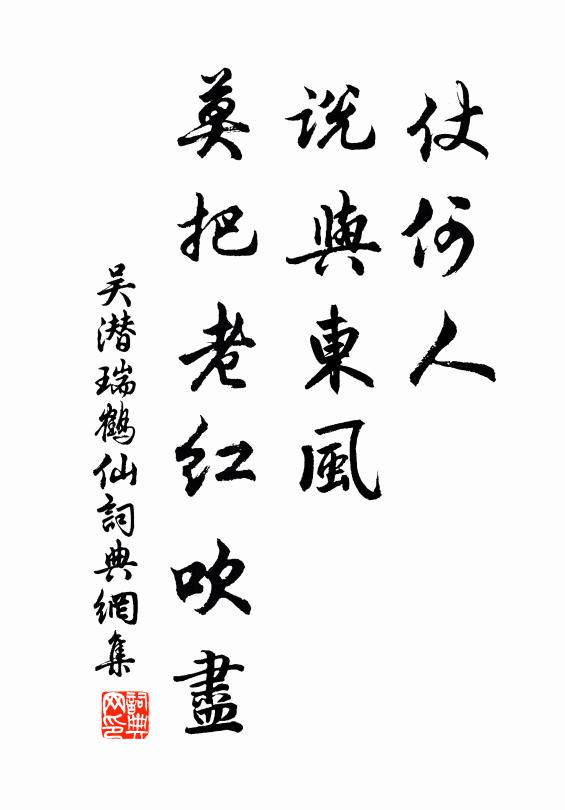 仗何人
説與東風
莫把老红吹盡
吴潜瑞鶴仙詞典網集
詞典网印